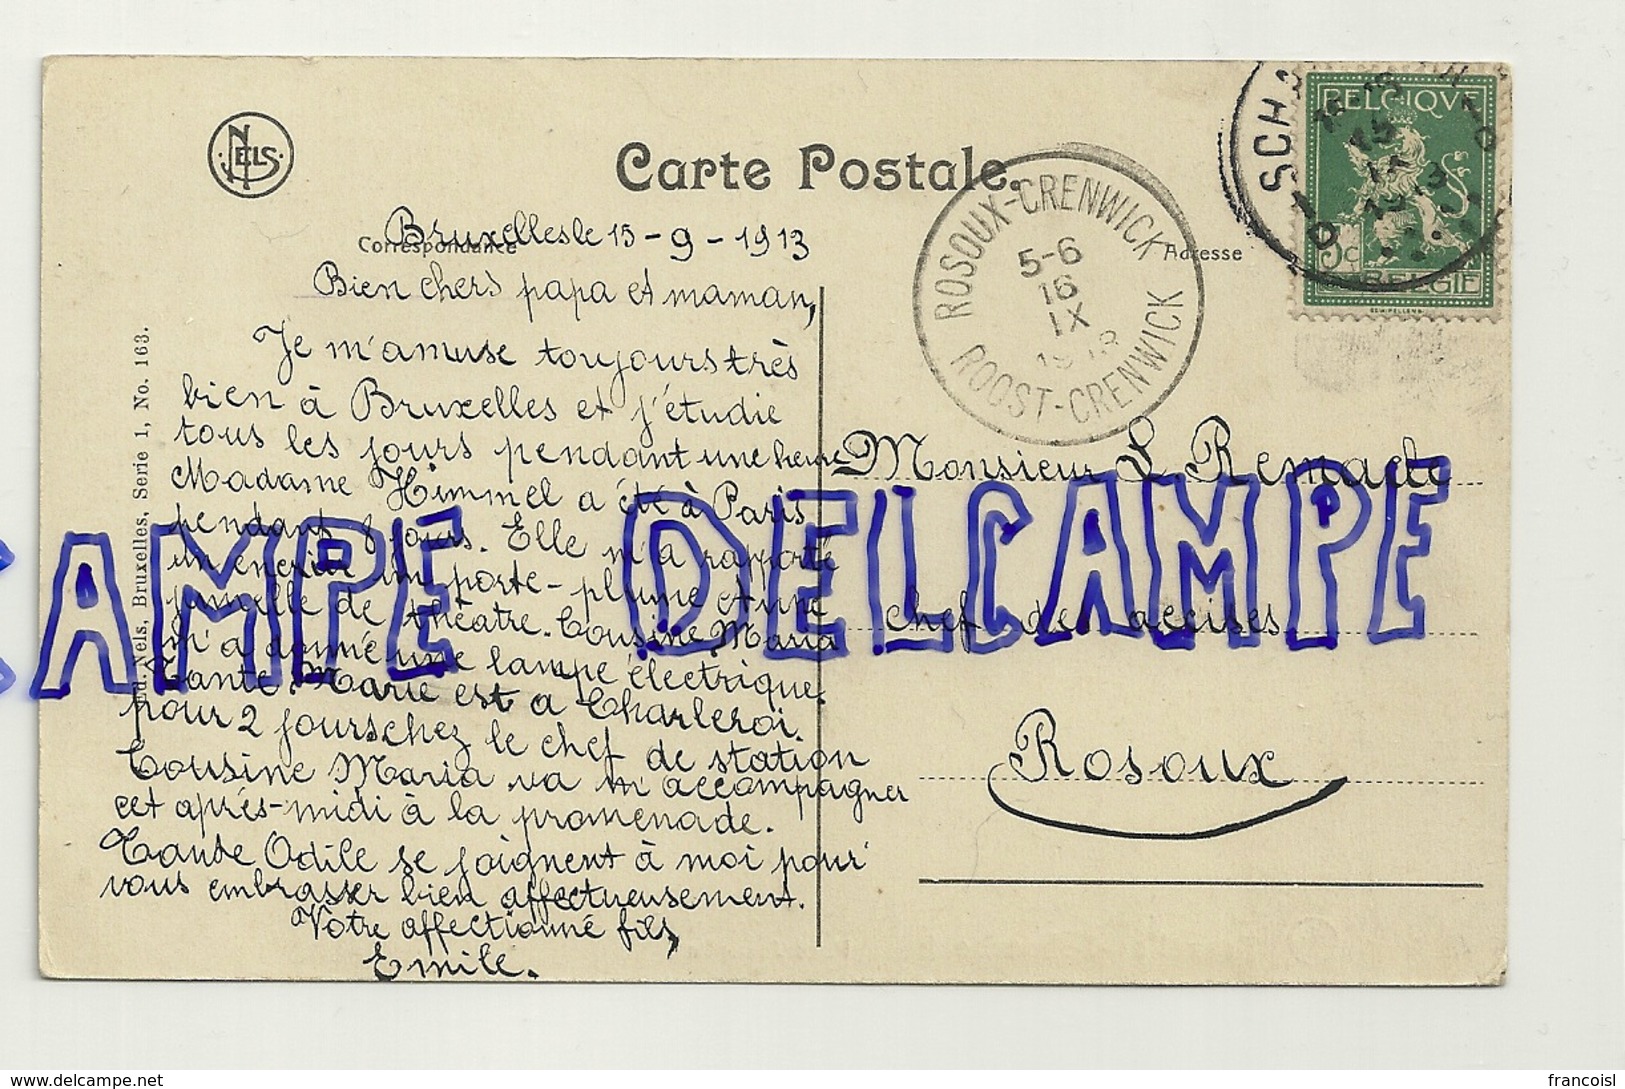 NELS
Carte Postale.
Correspondance
Adresse
Bruxelles le 15-9-1913
Bien chers papa et maman,
Je m'amuse toujours très
bien à Bruxelles et j'étudie
tous les jours pendant une heure
Madame Himmel a été à Paris
pendant 8 jours. Elle m'a rapporté
un encrier un porte-plume et une
jumelle de théâtre. Cousine Maria
m'a donné une lampe électrique.
Tante Marie est a Charleroi
pour 2 jours chez le chef de station
Cousine Maria va m'accompagner
cet après-midi à la promenade.
Tante Odile se joignent à moi pour
vous embrasser bien affectueusement.
Votre affectionné fils,
Emile.
Ed. Nels, Bruxelles, Serie 1, No. 163.
ROSOUX-CRENWICK
5-6
16
IX
ROOST-CRENWICK
BELGIQUE
5c
BELGIE
Monsieur L Remacle
chef des accises
Rosoux
CAMPE DELCAMPE
www.delcampe.net
francoisl